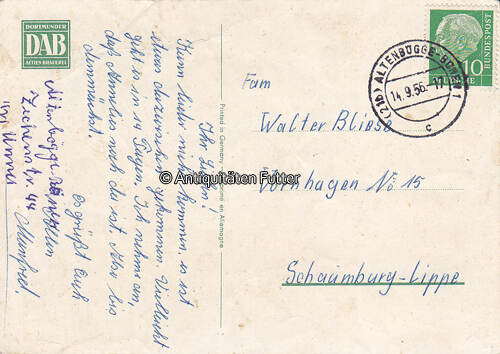 DORTMUNDER
DAB
ACTIEN-BRAUEREI
Ihr Lieben!
Kann leider nicht kommen, es ist
etwas dazwischen gekommen. Vielleicht
geht es in 14 Tagen. Ich nehme an,
daß Annelies noch da ist. Also bis
demnächst.
es grüßt Euch
Manfred.
Altenbögge
Zechenstr. 44
Unna
Printed in Germany
en Allemagne
Fam
Walter Bliese
Vornhagen No 15
Schaumburg-Lippe
(21b) ALTENBÖGGE-BÖNEN 1
14.9.56.-17
c
DEUTSCHE BUNDESPOST
10
© Antiquitäten Futter